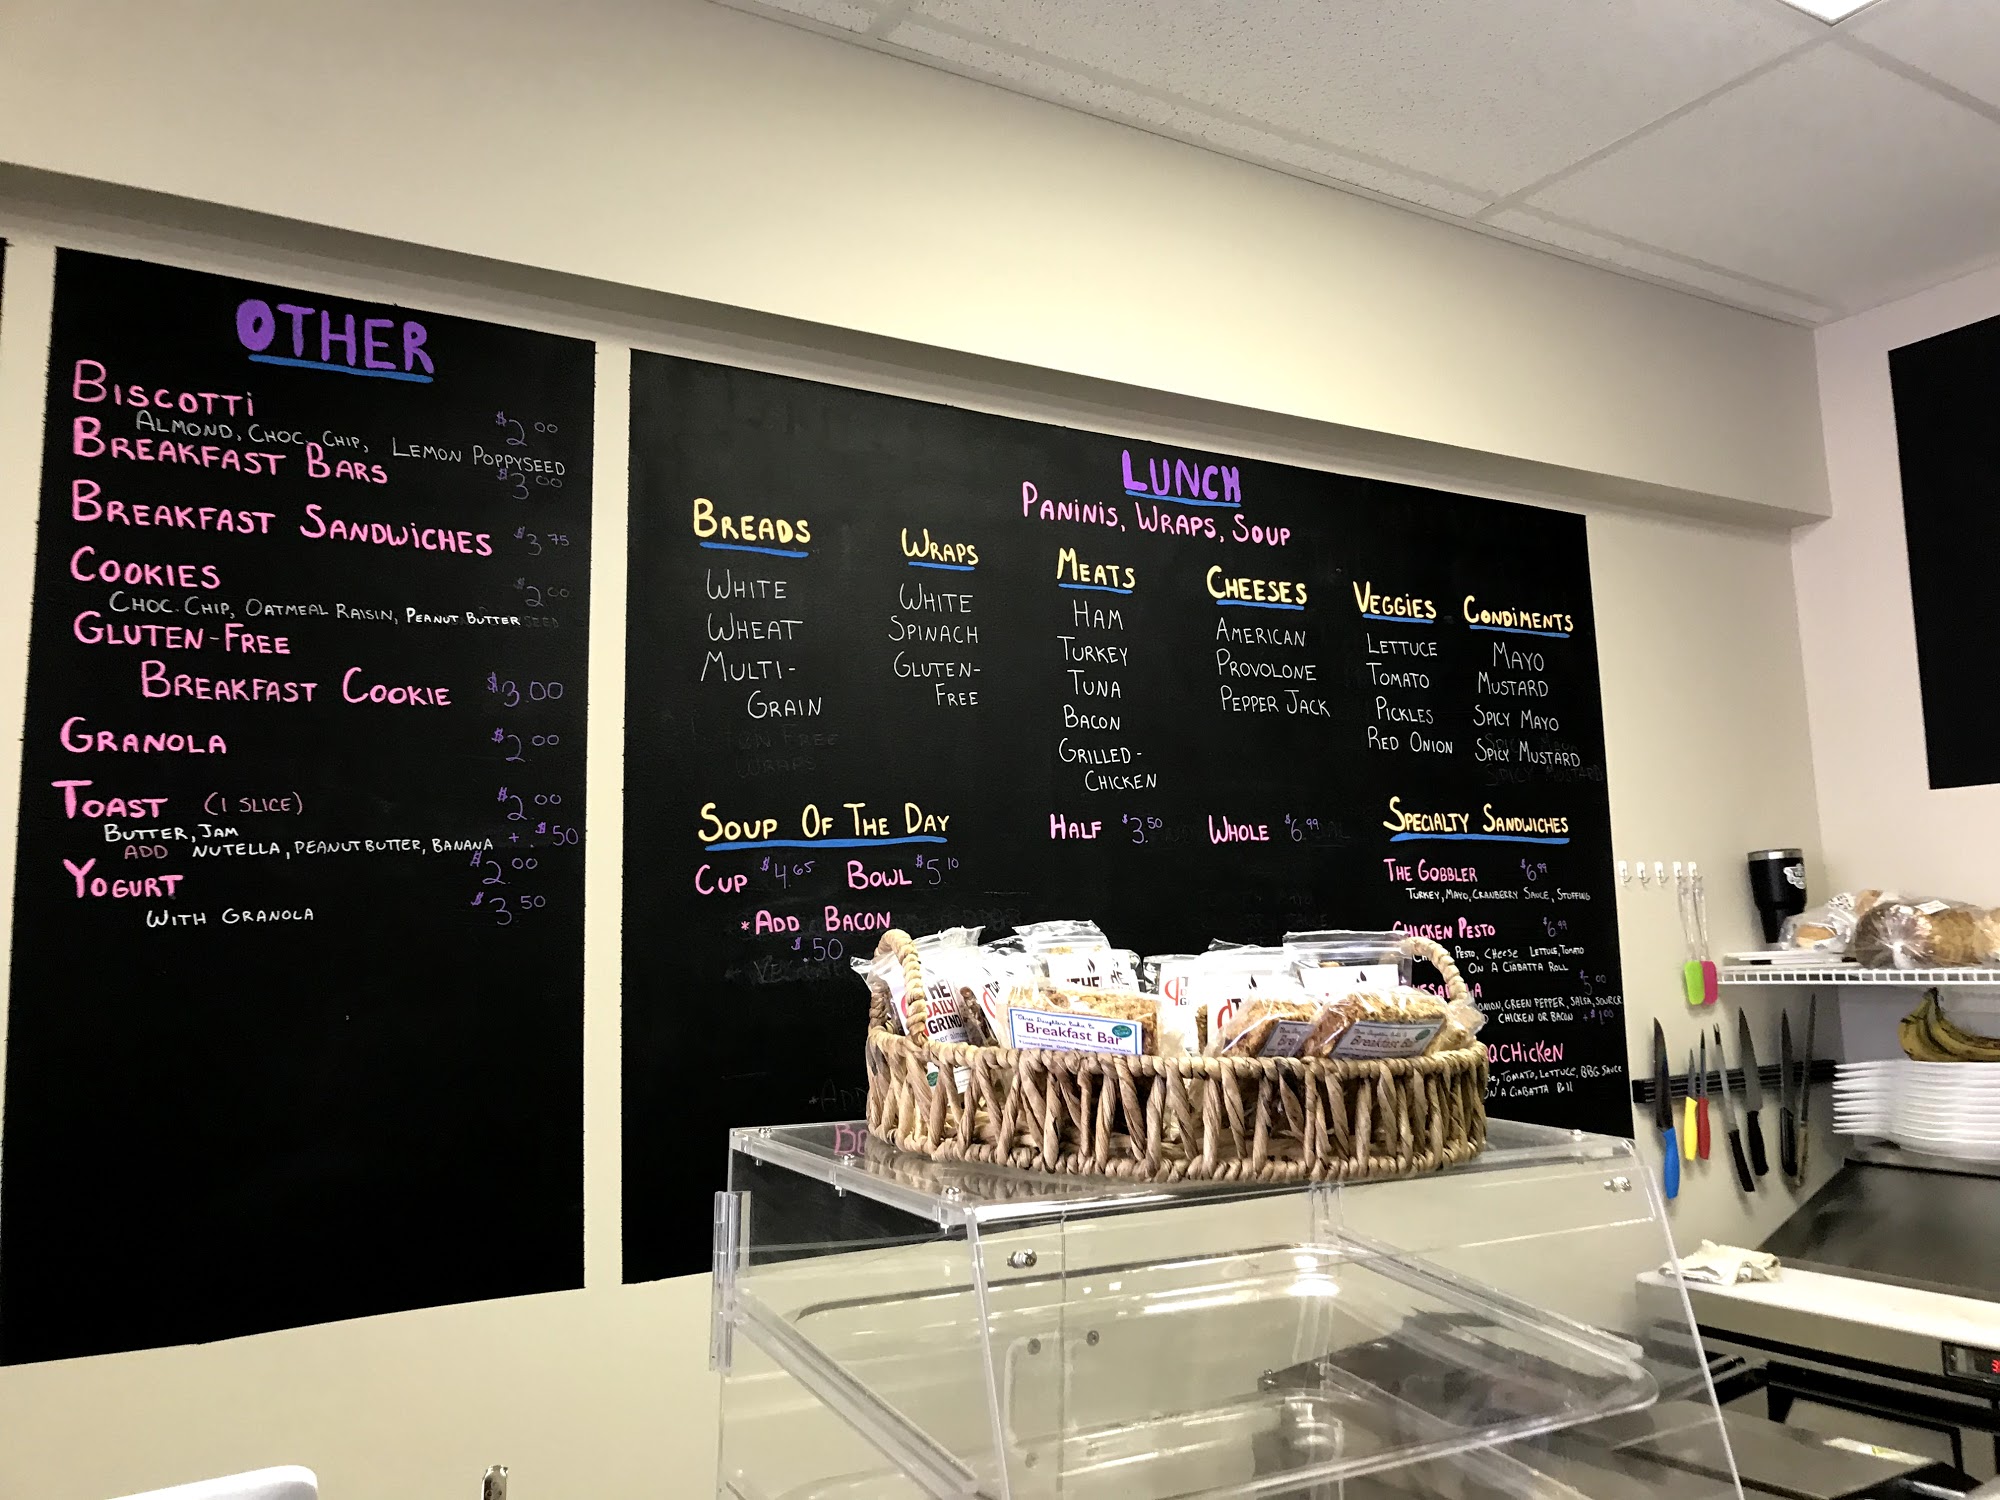 OTHER
BISCOTTI $2.00
ALMOND, CHOC. CHIP, LEMON POPPYSEED
BREAKFAST BARS $3.00
BREAKFAST SANDWICHES $3.75
COOKIES $2.00
CHOC. CHIP, OATMEAL RAISIN, PEANUT BUTTER
GLUTEN-FREE
BREAKFAST COOKIE $3.00
GRANOLA $2.00
TOAST (1 SLICE) $2.00
BUTTER, JAM
ADD NUTELLA, PEANUT BUTTER, BANANA + $.50
YOGURT $2.00
WITH GRANOLA $3.50
LUNCH
PANINIS, WRAPS, SOUP
BREADS
WHITE
WHEAT
MULTI-
GRAIN
WRAPS
WHITE
SPINACH
GLUTEN-
FREE
MEATS
HAM
TURKEY
TUNA
BACON
GRILLED-
CHICKEN
CHEESES
AMERICAN
PROVOLONE
PEPPER JACK
VEGGIES
LETTUCE
TOMATO
PICKLES
RED ONION
CONDIMENTS
MAYO
MUSTARD
SPICY MAYO
SPICY MUSTARD
HALF $3.50 WHOLE $6.99
SOUP OF THE DAY
CUP $4.65 BOWL $5.10
*ADD BACON
$.50
SPECIALTY SANDWICHES
THE GOBBLER $6.99
TURKEY, MAYO, CRANBERRY SAUCE, STUFFING
CHICKEN PESTO $6.99
PESTO, CHEESE LETTUCE, TOMATO
ON A CIABATTA ROLL
GREEN PEPPER, SALSA,
CHICKEN OR BACON + $1.00
CHICKEN
TOMATO, LETTUCE, BBQ SAUCE
ON A CIABATTA Roll
THE
DAILY
GRIND
Breakfast Bar
Breakfast Bar